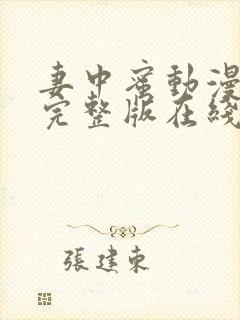 妻中蜜動漫
完整版在綫
張建東